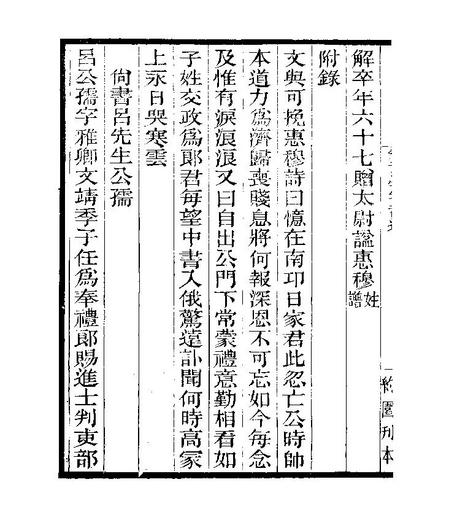 解卒年六十七贈太尉謚惠穆姓譜
附錄
文與可挽惠穆詩曰憶在南邛日家君此忽亡公時帥
本道力為濟歸喪賤息將何報深恩不可忘如今每念
及惟有淚浪浪又曰自出公門下常蒙禮意勤相看如
子姓交政為郞君每望中書入俄驚遠訃聞何時高冢
上永日哭寒雲
尙書呂先生公孺
呂公孺字雅卿文靖季子任為奉禮郞賜進士判吏部
約園刊本